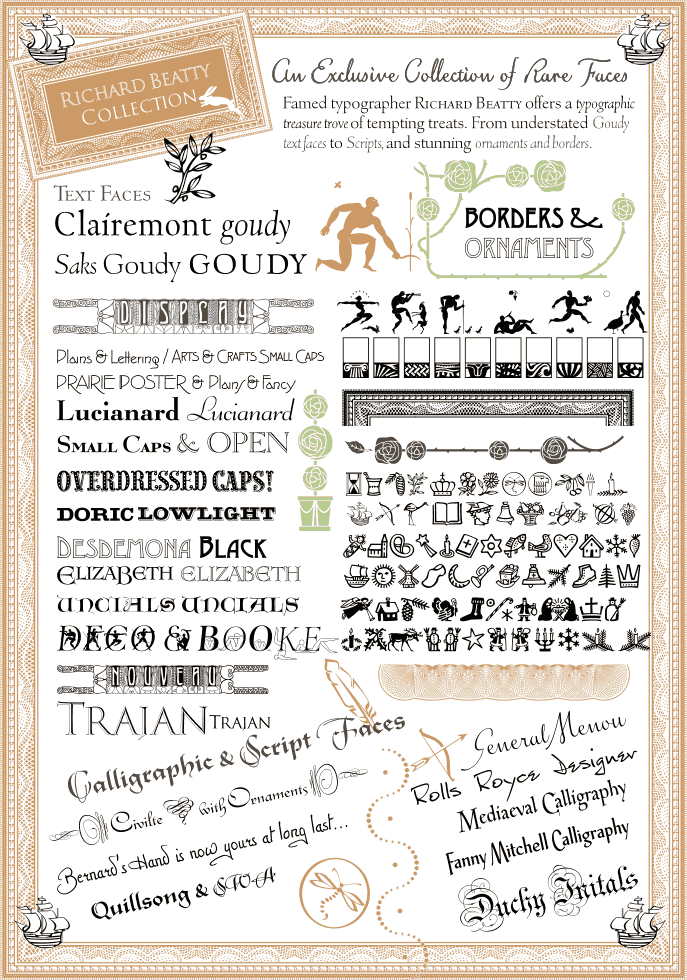 RICHARD BEATTY
COLLECTION
An Exclusive Collection of Rare Faces
Famed typographer RICHARD BEATTY offers a typographic
treasure trove of tempting treats. From understated Goudy
text faces to Scripts, and stunning ornaments and borders.
TEXT FACES
Clairemont goudy
Saks Goudy GOUDY
BORDERS &
ORNAMENTS
DISPLAY
Plains & Lettering / ARTS & CRAFTS SMALL CAPS
PRAIRIE POSTER & Plain/& Fancy
Lucianard Lucianard
SMALL CAPS & OPEN
OVERDRESSED CAPS!
DORIC LOWLIGHT
DESDEMONA BLACK
ELIZABETH ELIZABETH
UNCIALS UNCIALS
DECO & BOOKE
NOUVEAU
TRAJAN TRAJAN
Calligraphic & Script Faces
Civilte with Ornaments
Bernard's Hand is now yours at long last...
Quillsong & SWA
General Menou
Rolls Royce Designer
Mediaeval Calligraphy
Fanny Mitchell Calligraphy
Duchy Initals